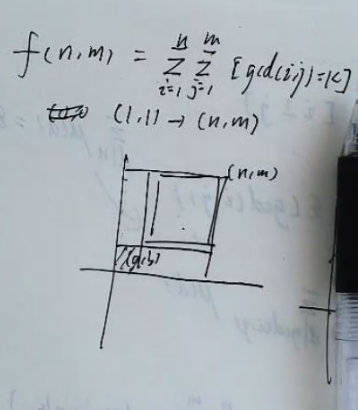 f(n,m) = n∑i=1 m∑j=1 [gcd(i,j)=k]
(1,1) → (n,m)
(n,m)
(a,b)